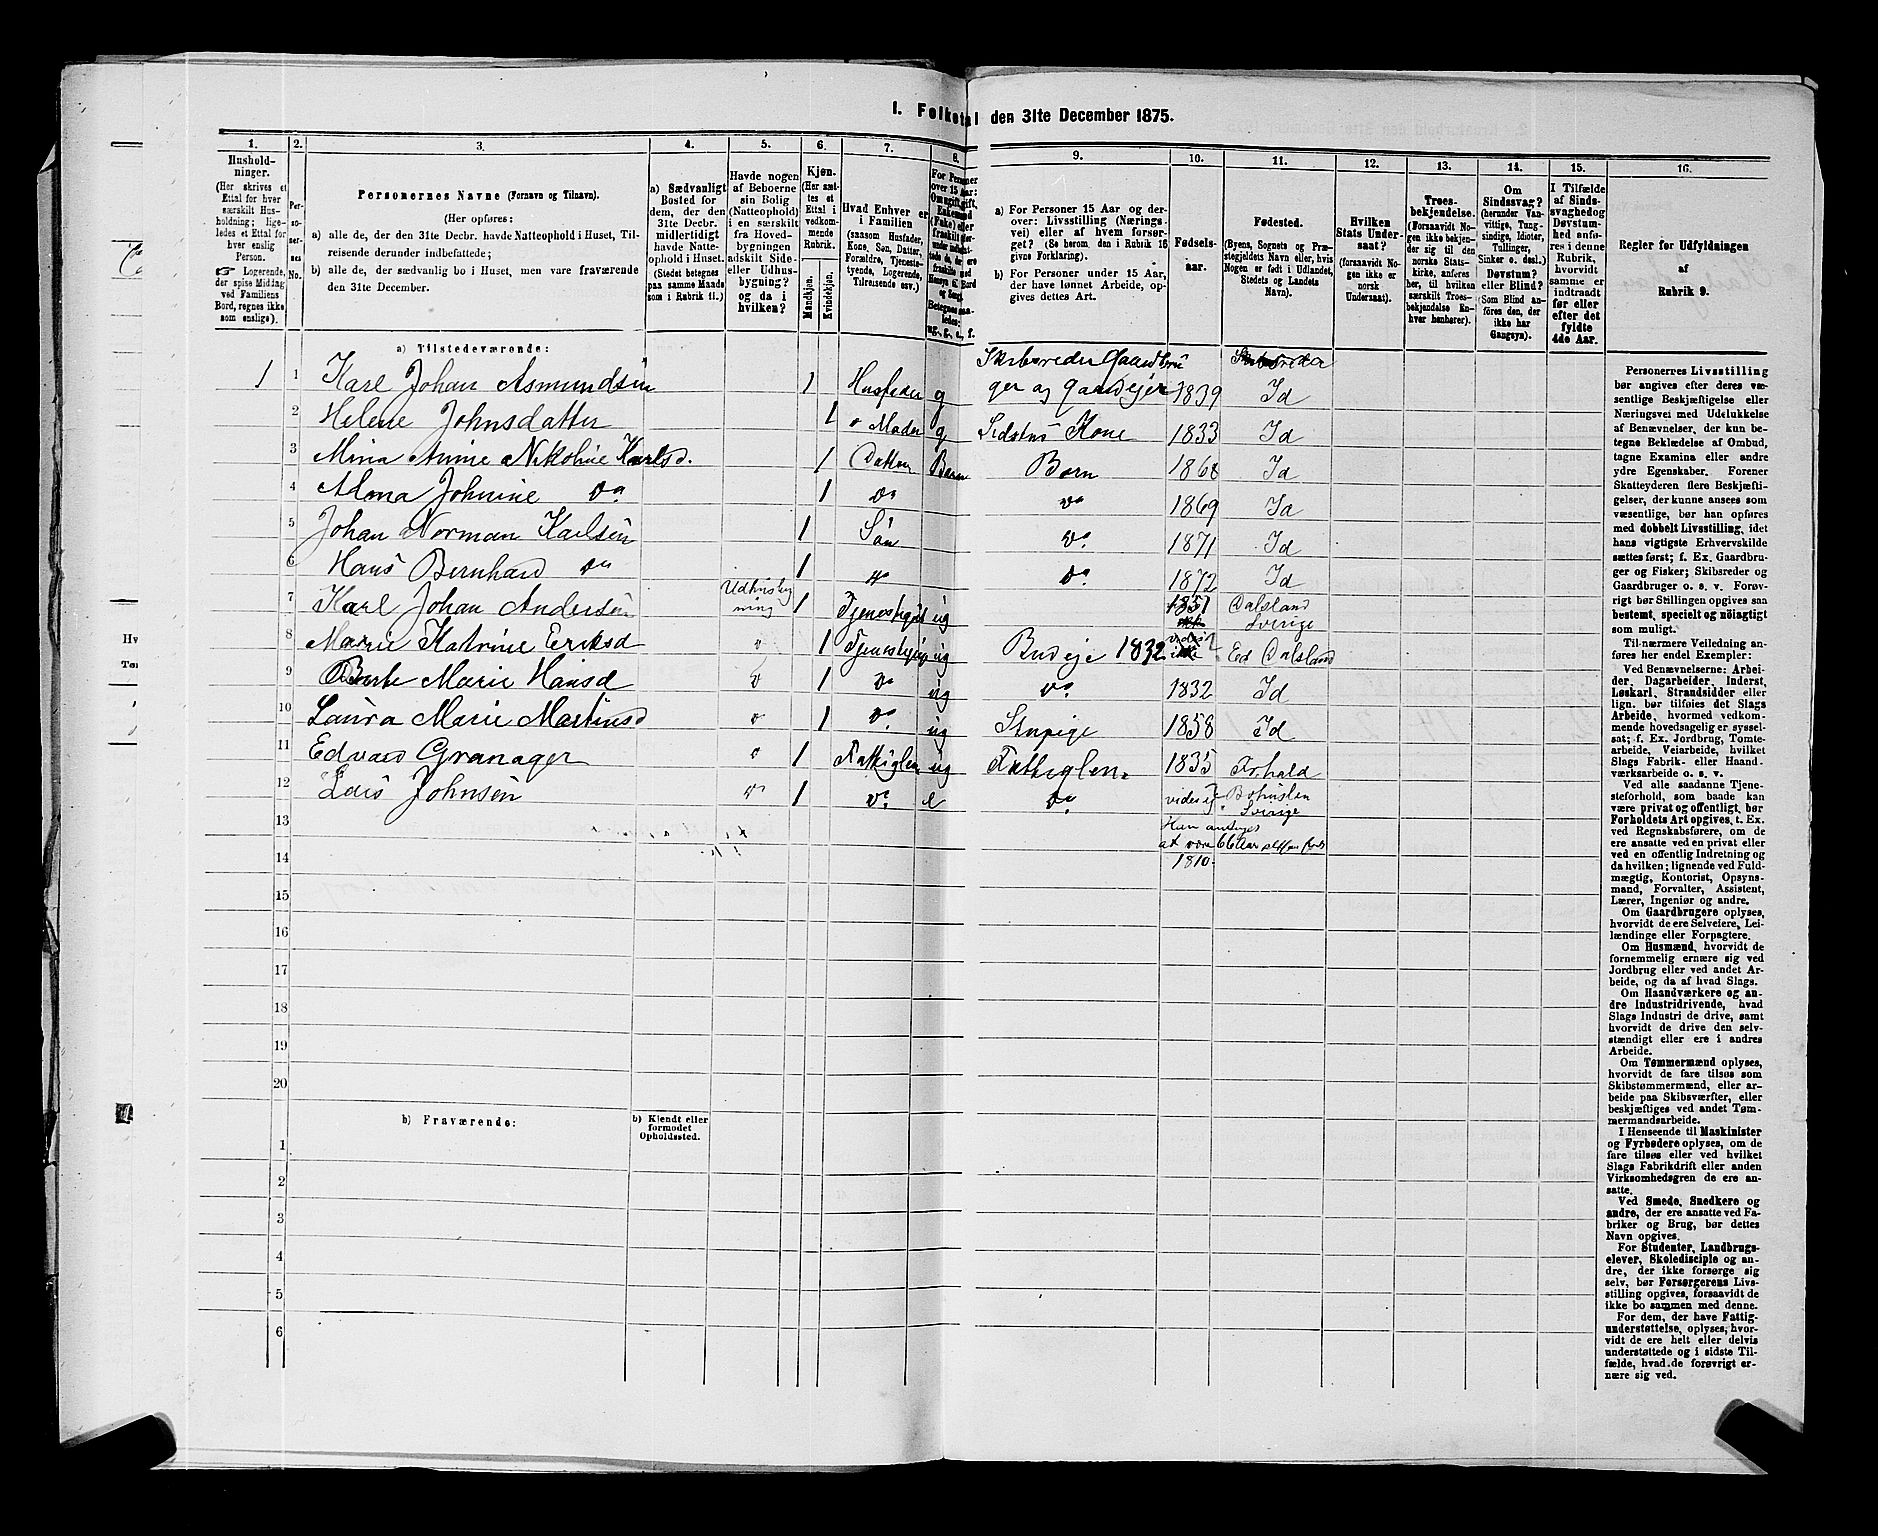 1. Folketal den 31te December 1875.
1. 2. 3. 4. 5. 6. 7. 8. 9. 10. 11. 12. 13. 14. 15. 16.
Hushold-
ninger.
(Her skrives et
Ettal for hver
særskilt Hus-
holdning; lige-
ledes et Ettal for
hver enslig
Person.
☞ Logerende,
der spise Middag
ved Familiens
Bord, regnes ikke
som enslige).
Per-
so-
ner-
nes
No.
Personernes Navne (Fornavn og Tilnavn).
(Her opføres:
a) alle de, der den 31te Decbr. havde Natteophold i Huset, Til-
reisende derunder indbefattede;
b) alle de, der sædvanlig bo i Huset, men vare fraværende
den 31te December.
a) Sædvanligt
Bosted for
dem, der den
31te Decbr.
midlertidigt
havde Natte-
ophold i Huset.
(Stedet betegnes
paa samme Maade
som i Rubrik 11.)
Havde nogen
af Beboerne
sin Bolig
(Natteophold)
i en særskilt
fra Hoved-
bygningen
adskilt Side-
eller Udhus-
bygning?
og da i
hvilken?
Kjøn.
(Her sæt-
tes et
Ettal i
vedkom-
mende
Rubrik.
Mandkjøn.
Kvindekjøn.
Hvad Enhver er
i Familien
(saasom Husfader,
Kone, Søn, Datter,
Forældre, Tjeneste-
tyende, Logerende,
Tilreisende osv.)
For Personer
over 15 Aar:
a) For Personer 15 Aar og der-
over: Livsstilling (Nærings-
vei) eller af hvem forsør-
get? (Se herom, den i Rubrik 16
givne Forklaring).
b) For Personer under 15 Aar,
der have lønnet Arbeide, op-
gives dettes Art.
Fødsels-
aar.
Fødested.
(Byens, Sognets og Præ-
stegjeldets Navn eller, hvis
Nogen er født i Udlandet,
Stedets og Landets
Navn).
Hvilken
Stats Under-
saat?
(forsaavidt No-
gen ikke er
norsk
Undersaat).
Troes-
bekjendelse.
(Forsaavidt No-
gen ikke bekjen-
der sig til den
norske Stats-
kirke, anføres
her, til hvilken
særskilt Troes-
bekjendelse En-
hver henhører).
Om
Sindssvag?
(herunder Van-
vittige, Tung-
sindige, Idioter,
Tullinger,
Sinker o. desl.)
Døvstum?
eller Blind?
(Som Blind an-
føres den, der
ikke har
Gangsyn).
I Tilfælde
af Sinds-
svaghed og
Døvstum-
hed anfø-
res i denne
Rubrik,
hvorvidt
samme er
indtraadt
før eller
efter det
fyldte
4de Aar.
Regler for Udfyldningen
af
Rubrik 9.
a) Tilstedeværende:
Skibsreder Gaardbru
1 1 Karl Johan Asmundsen 1 Husfader g ger og Gaardejer 1839 Id
2 Helene Johnsdatter 1 Moder g Sidstns Kone 1833 Id
3 Mina Anine Nikoline Karlsd. 1 Datter Barn Børn 1868 Id
4 Alma Johnine do 1 do do 1869 Id
5 Johan Norman Karlsen 1 Søn do 1871 Id
6 Hans Bernhard do 1 do do 1872 Id
7 Karl Johan Andersen Udhusby
ning 1 ug 1851 Dalsland
Sverige
8 Marie Katrine Eriksd 1 ug Budeje 1832 Ed Dalsland
9 Berte Marie Hansd 1 do ug do 1832 Id
10 Laura Marie Martinsd 1 do ug Stupige 1858 Id
11 Edvard Granager 1 Fattiglem ug Fattiglem 1835 Frhald
12 Lars Johnsen do 1 do e do vides ej Bohuslen
Sverige
13 Han antages
14 at være 66 Aar
1810.
15
16
17
18
19
20
b) Fraværende:
b) Kjendt eller
formodet
Opholdssted.
1
2
3
4
5
6
Personernes Livsstilling
bør angives efter deres væ-
sentlige Beskjæftigelse eller
Næringsvei med Udelukkelse
af Benævnelser, der kun be-
tegne Beklædelse af Ombud,
tagne Examina eller andre
ydre Egenskaber. Forener
Skatteyderen flere Beskjæfti-
gelser, der kunne ansees som
væsentlige, bør han opføres
med dobbelt Livsstilling, idet
hans vigtigste Erhvervskilde
sættes først; f. Ex. Gaardbru-
ger og Fisker; Skibsreder og
Gaardbruger o. s. v. Forøv-
rigt bør Stillingen opgives saa
bestemt, specielt og nöiagtigt
som muligt.
Til nærmere Veiledning an-
føres her endel Exempler:
Ved Benævnelserne: Arbei-
der, Dagarbeider, Inderst,
Løskarl, Strandsidder eller
lign. bør tilføies det Slags
Arbeide, hvormed vedkom-
mende hovedsagelig er syssel-
sat; f. Ex. Jordbrug, Tømte-
arbeide, Veiarbeide, hvilket
Slags Fabrik- eller Haand-
værksarbeide o. s. v.
Ved alle saadanne Tjene-
steforhold, som baade kan
være privat og offentligt, bør
Forholdets Art opgives, t. Ex.
ved Regnskabsførere, om de
ere ansatte ved en privat eller
ved en offentlig Indretning og
da hvilken; lignende ved Fuld-
mægtig, Kontorist, Opsyns-
mand, Forvalter, Assistent,
Lærer, Ingeniør og andre.
Om Gaardbrugere oplyses,
hvorvidt de ere Selveiere, Lei-
lændinge eller Forpagtere.
Om Husmænd, hvorvidt de
fornemmelig ernære sig ved
Jordbrug eller ved andet Ar-
beide, og da af hvad Slags.
Om Haandværkere og an-
dre Industridrivende, hvad
Slags Industri de drive, samt
hvorvidt de drive den selv-
stændigt eller ere i andres
Arbeide.
Om Tømmermænd oplyses,
hvorvidt de fare tilsøs som
Skibstømmermænd, eller ar-
beide paa Skibsværfter, eller
beskjæftiges ved andet Tøm-
mermandsarbeide.
I Henseende til Maskinister
og Fyrbødere oplyses, om de
fare tilsøs eller ved hvilket
Slags Fabrikdrift eller anden
Virksomhedsgren de ere an-
satte.
Ved Smede, Snedkere og
andre, der ere ansatte ved Fa-
briker og Brug, bør dettes
Navn opgives.
For Studenter, Landbrugs-
elever, Skoledisciple og an-
dre, der ikke forsørge sig
selv, bør Forsørgerens Livs-
stilling opgives, forsaavidt de
ikke bo sammen med denne.
For dem, der have Fattig-
understøttelse, oplyses, hvor-
vidt de ere helt eller delvis
understøttede og i sidste Til-
fælde, hvad de forøvrigt er-
nære sig ved.